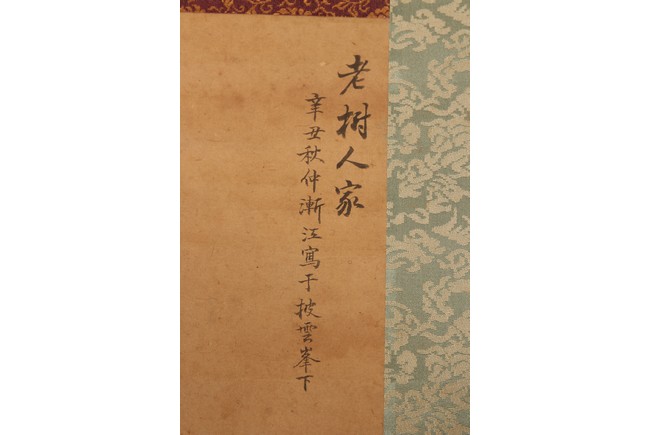 老树人家
辛丑秋仲漸江寫于披雲峯下